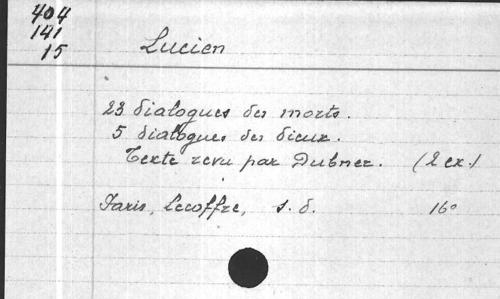 404
141
15
Lucien
23 dialogues des morts.
5 dialogues des dieux.
Texte revu par Dubner. (2 ex.)
Paris, Lecoffre, s. d. 16°